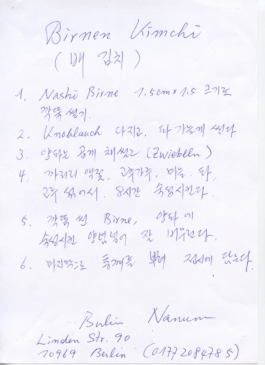 Birnen Kimchi
( 배 김치 )
1. Nashi Birne 1.5cm×1.5 크기로
깍뚝썰기.
2. Knoblauch 다지고, 파 가늘게 썬다
3. 양파는 곱게 채썬다 (Zwiebeln)
4. 까나리 액젓, 고추가루, 마늘, 파,
섞어서 8시간 숙성시킨다.
5. 깍뚝 썬 Birne, 양파에
숙성시킨 양념넣어 잘 버무린다.
6. 마지막으로 통깨를 뿌려 접시에 담는다.
Berlin Nanum
Linden Str. 90
10969 Berlin (01772084785)